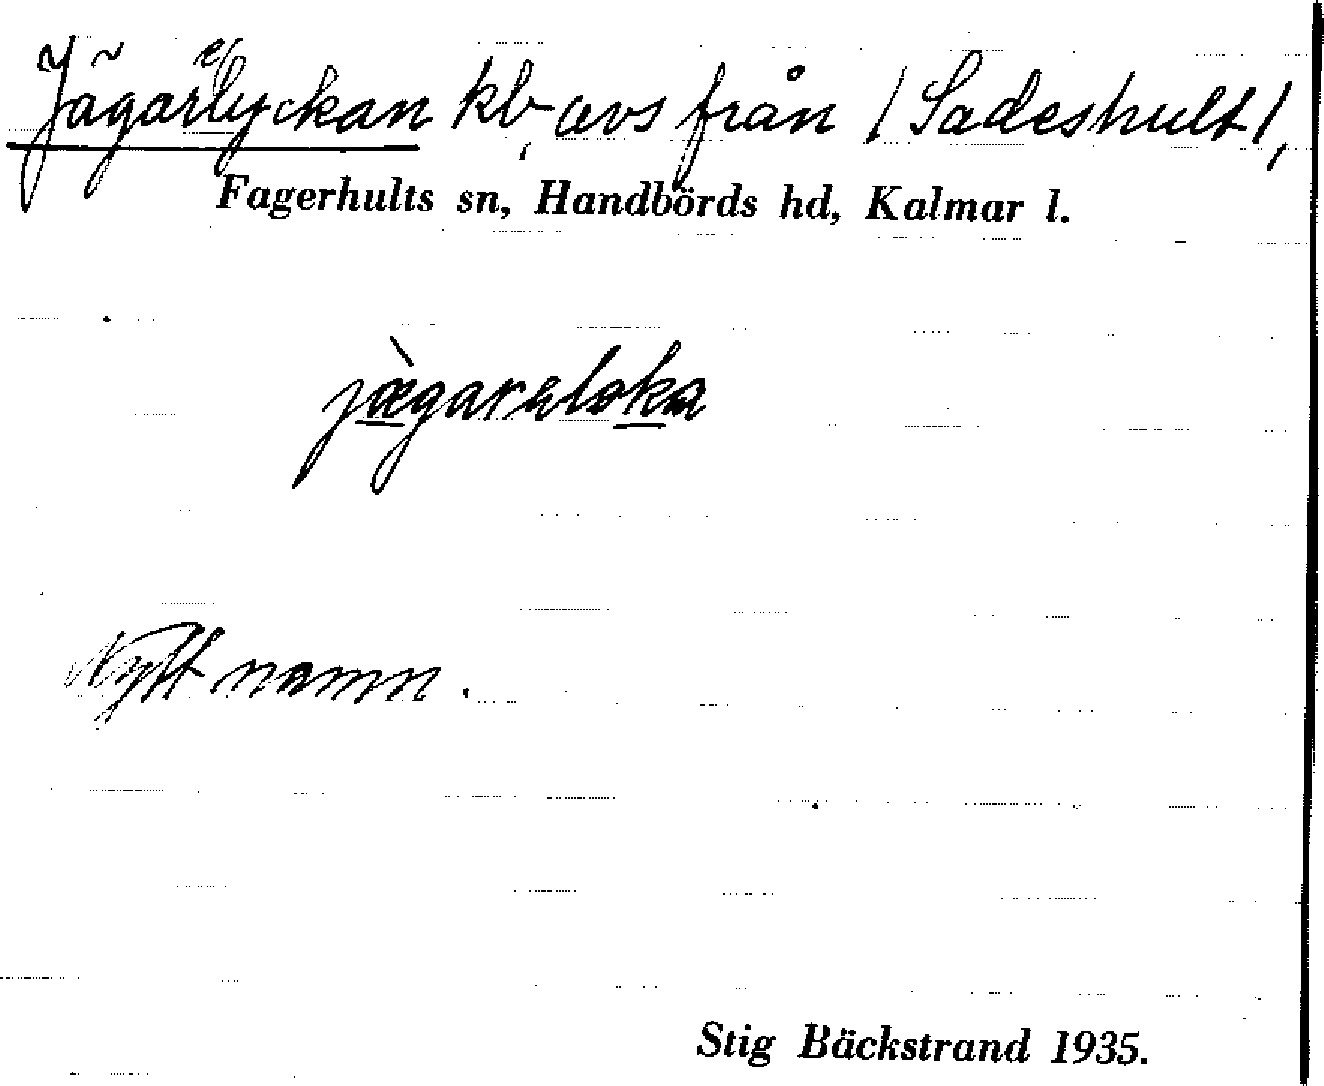 Jägarelyckan kb, avs från /Sadeshult/,
Fagerhults sn, Handbörds hd, Kalmar l.
jàgarəloka
Nytt namn.
Stig Bäckstrand 1935.